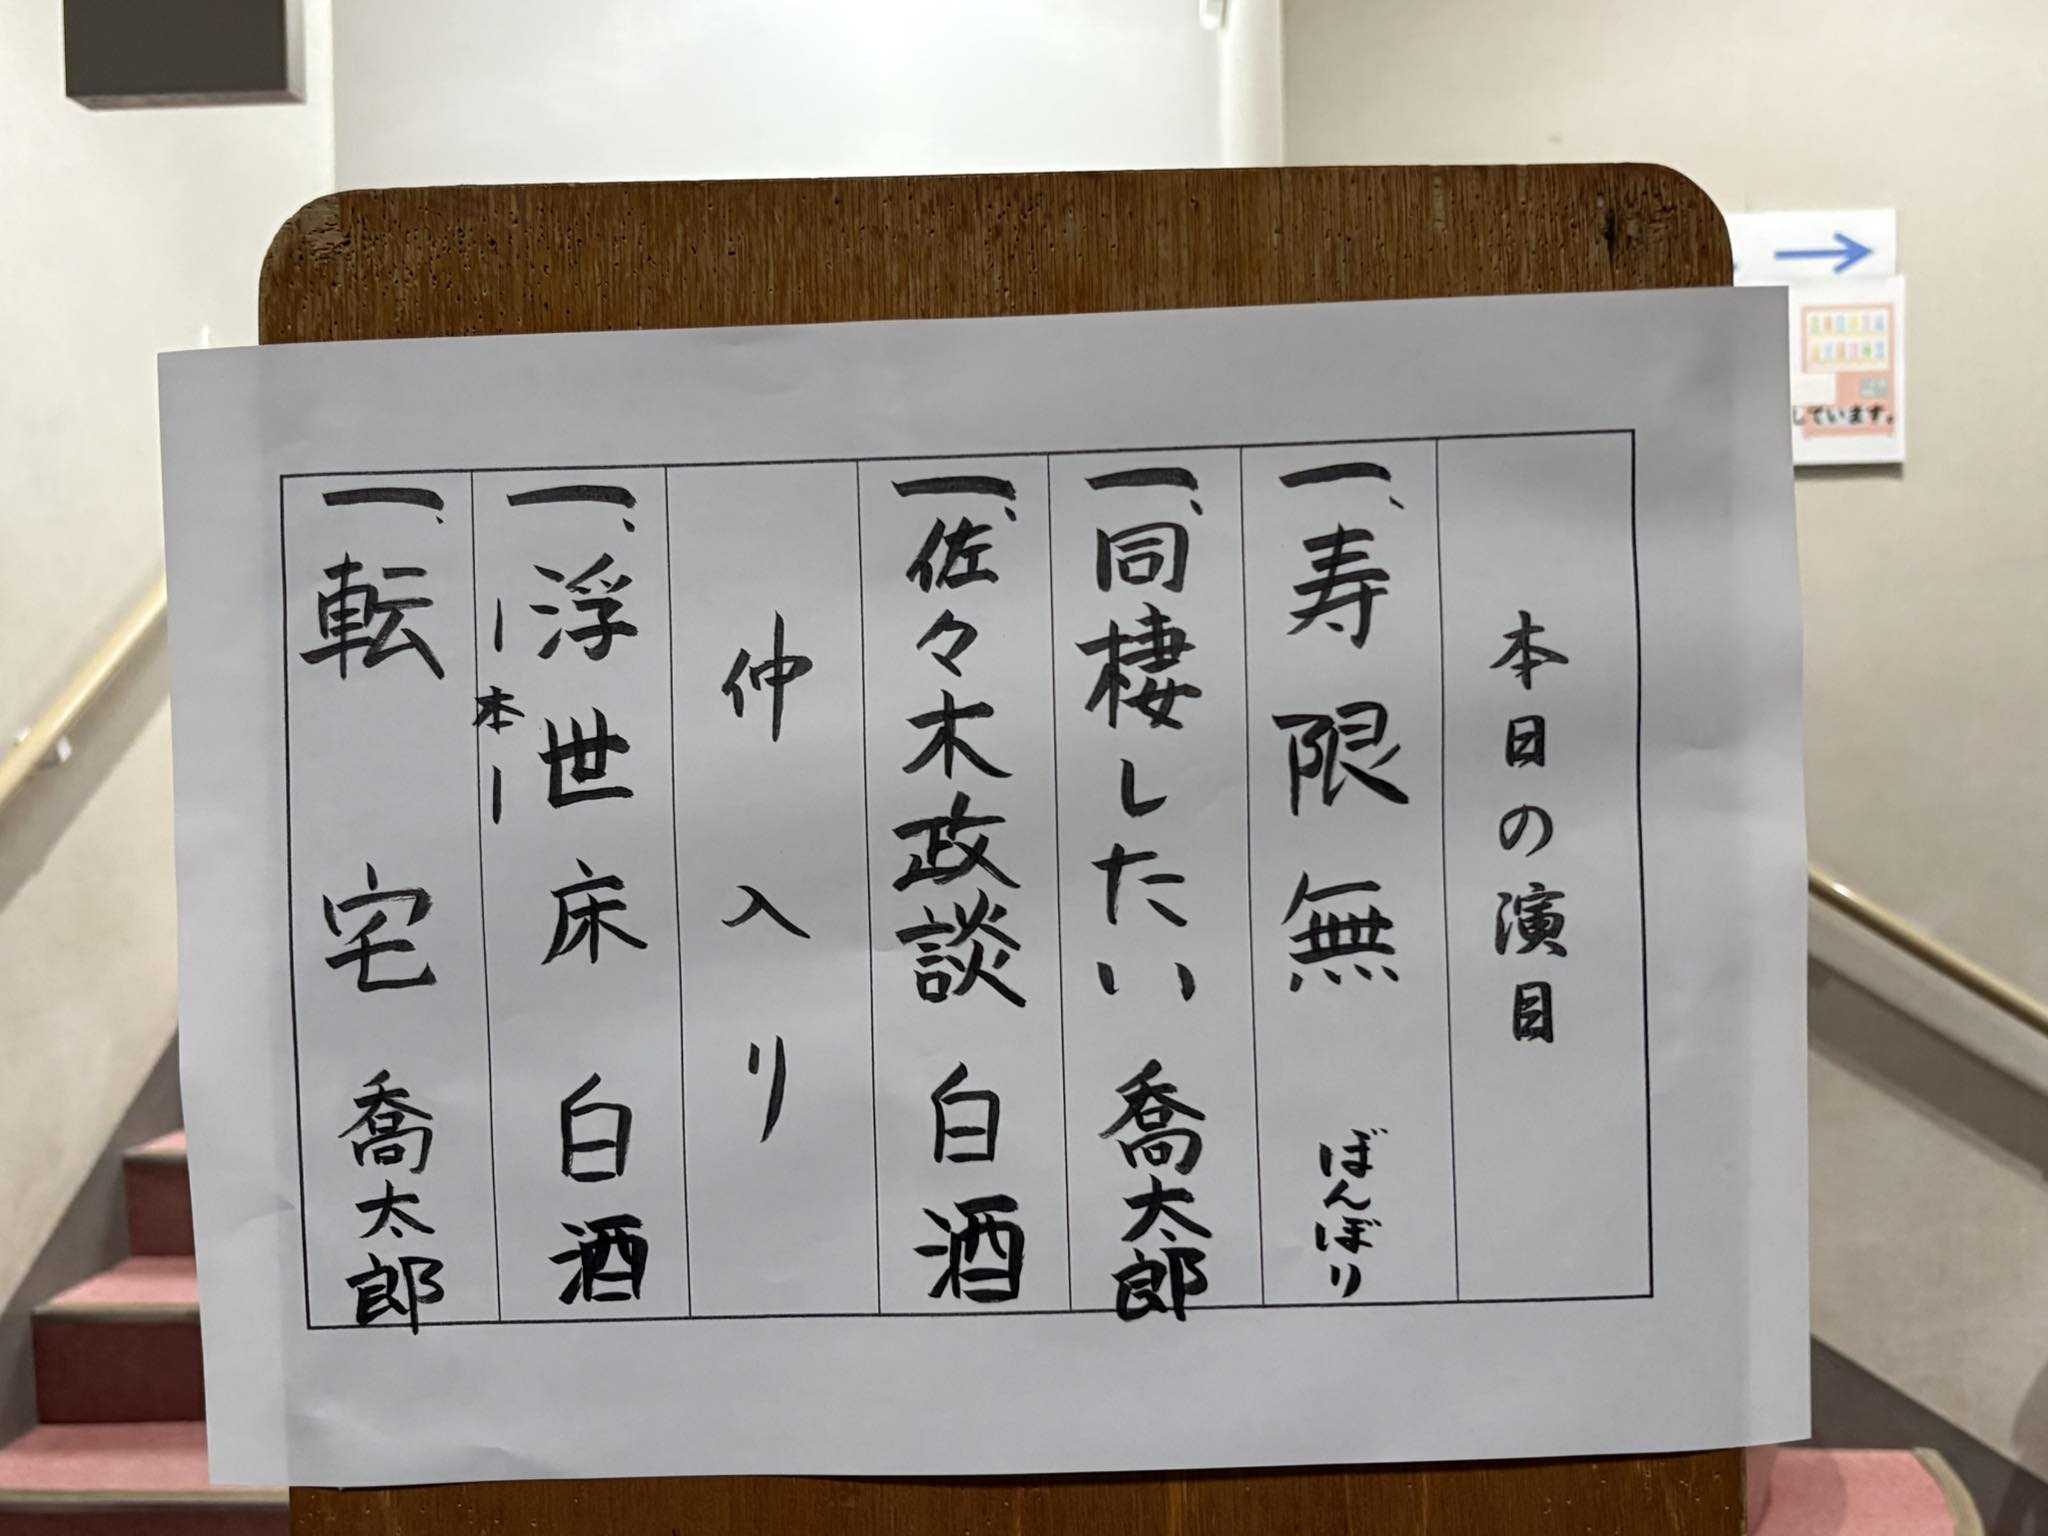 本日の演目
一、寿限無 ぼんぼり
一、同棲したい 喬太郎
一、佐々木政談 白酒
仲入り
一、浮世床 白酒
ー本ー
一、転宅 喬太郎
→
しています。